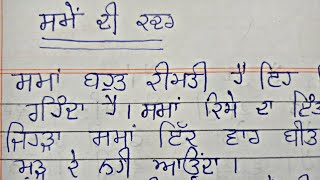 ਸਮੇਂ ਦੀ ਕਦਰ
ਸਮਾਂ ਬਹੁਤ ਕੀਮਤੀ ਹੈ ਇਹ
ਰਹਿੰਦਾ ਹੈ। ਸਮਾਂ ਕਿਸੇ ਦਾ
ਜਿਹੜਾ ਸਮਾਂ ਇੱਕ ਵਾਰ ਬੀਤ
ਮੁੜ ਕੇ ਨਹੀ ਆਉਂਦਾ।